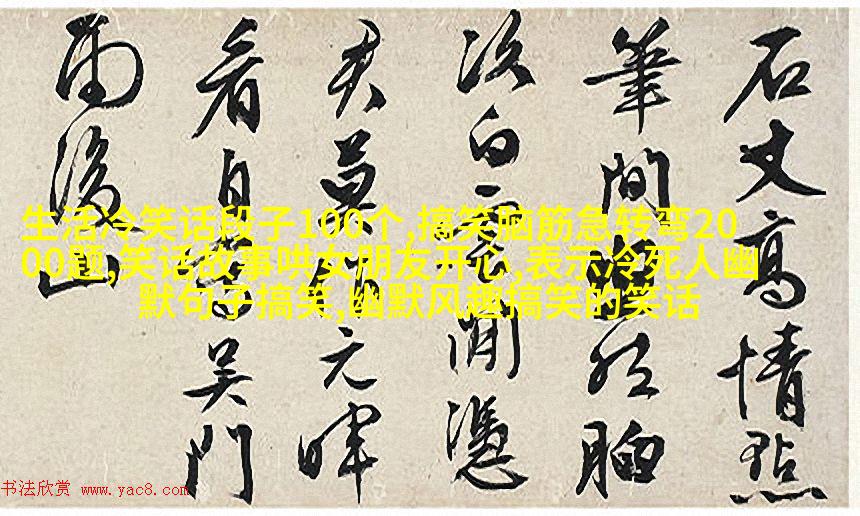 石丈高情點
筆間胸
次白雲閒憑
君莫作元暉
看自是吳門
雨後山
生活冷笑话段子100个,搞笑脑筋急转弯20
00题,笑话故事哄女朋友开心,表示冷死人幽
默句子搞笑,幽默风趣搞笑的笑话
书法欣赏 www.yac8.com